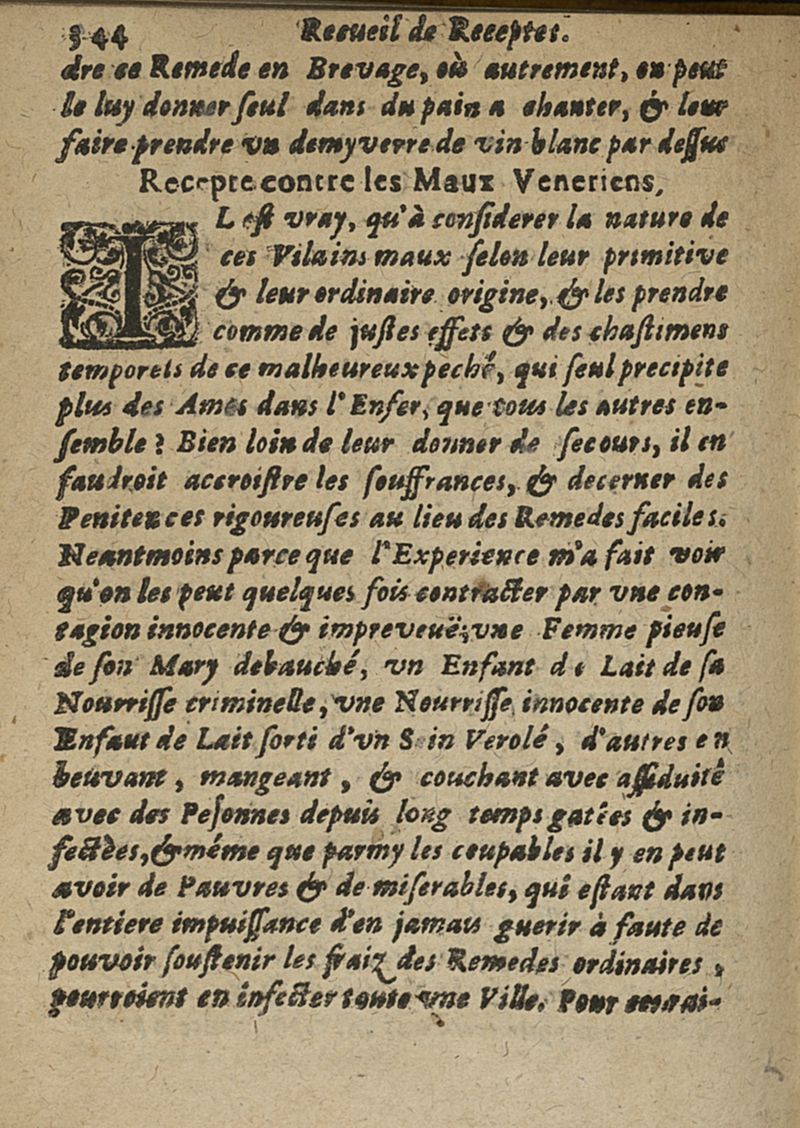 344 Recueil de Receptes.
dre ce Remede en Brevage, où autrement, on peut
le luy donner ſeul dans du pain a chanter, & leur
faire prendre vn demyverre de vin blanc par deſſus
Recepte contre les Maux Veneriens,
IL eſt vray, qu'à conſiderer la nature de
ces Vilains maux ſelon leur primitive
& leur ordinaire origine, & les prendre
comme de juſtes effets & des chaſtimens
temporels de ce malheureux peché, qui ſeul precipite
plus des Ames dans l'Enfer, que tous les autres en-
ſemble? Bien loin de leur donner de ſecours, il en
faudroit accroiſtre les ſouffrances, & decerner des
Penitences rigoureuſes au lieu des Remedes faciles.
Neantmoins parce que l'Experience m'a fait voir
qu'on les peut quelques fois contracter par vne con-
tagion innocente & impreveuë; vne Femme pieuſe
de ſon Mary debauché, vn Enfant de Lait de ſa
Nourriſſe criminelle, vne Nourriſſe innocente de ſon
Enfaut de Lait ſorti d'vn Sein Verolé, d'autres en
beuvant, mangeant, & couchant avec aſſiduitê
avec des Peſonnes depuis long temps gatées & in-
fectèes, & méme que parmy les coupables il y en peut
avoir de Pauvres & de miſerables, qui eſtant dans
l'entiere impuiſſance d'en jamais guerir à faute de
pouvoir ſouſtenir les fraiz des Remedes ordinaires,
pourroient en infecter toute vne Ville. Pour